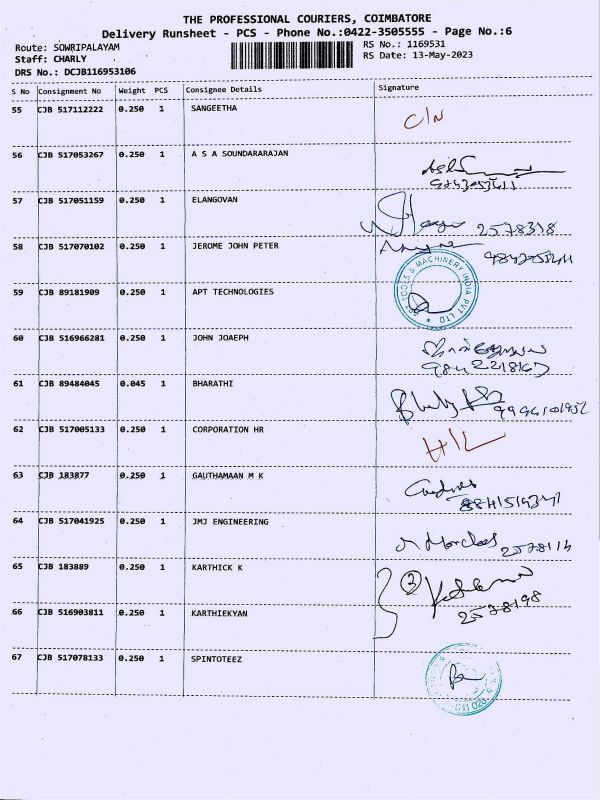 THE PROFESSIONAL COURIERS, COIMBATORE
Delivery Runsheet - PCS - Phone No.:0422-3505555 - Page No.:6
Route: SOWRIPALAYAM RS No.: 1169531
Staff: CHARLY RS Date: 13-May-2023
DRS No.: DCJB116953106
S No Consignment No Weight PCS Consignee Details Signature
55 CJB 517112222 0.250 1 SANGEETHA C/N
56 CJB 517053267 0.250 1 A S A SOUNDARARAJAN
57 CJB 517051159 0.250 1 ELANGOVAN 2578318
58 CJB 517070102 0.250 1 JEROME JOHN PETER
TOOLS & MACHINERY INDIA PVT LTD
59 CJB 89181909 0.250 1 APT TECHNOLOGIES
60 CJB 516966281 0.250 1 JOHN JOAEPH
9842218167
61 CJB 89484045 0.045 1 BHARATHI
62 CJB 517005133 0.250 1 CORPORATION HR
63 CJB 183877 0.250 1 GAUTHAMAAN M K
64 CJB 517041925 0.250 1 JMJ ENGINEERING
65 CJB 183889 0.250 1 KARTHICK K 2
66 CJB 516903811 0.250 1 KARTHIEKYAN 2578198
67 CJB 517078133 0.250 1 SPINTOTEEZ